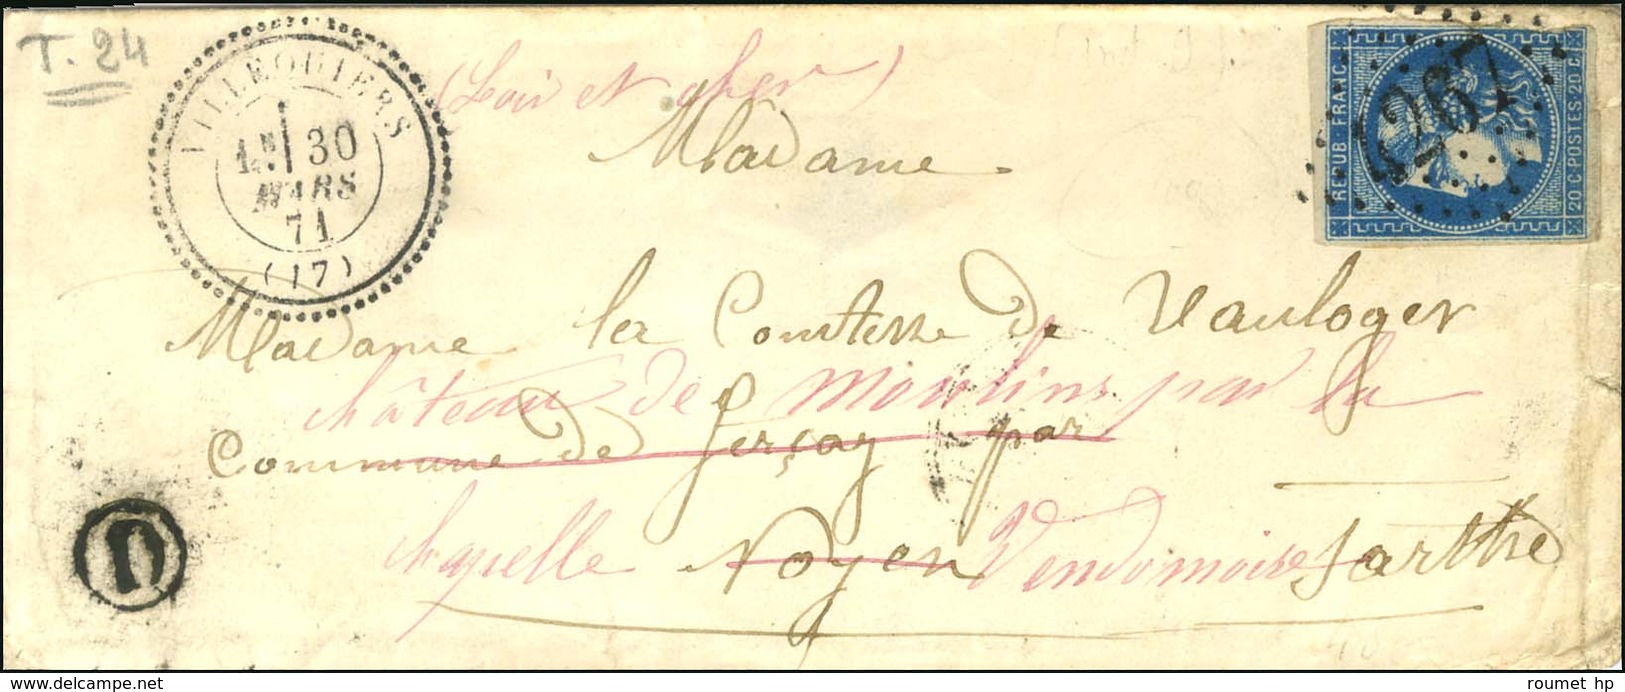 T. 24
VILLEQUIERS
1E 30
MARS
71
(17)
(Loir et Cher)
REPUB. FRANC.
20 C. POSTES. 20 C.
4267
Madame
Madame la Comtesse de Vauloger
château de moulins par la
Commune de Ferçay par
chapelle Noyen Vendomoise Sarthe
U
delcampe.net
roumet hp